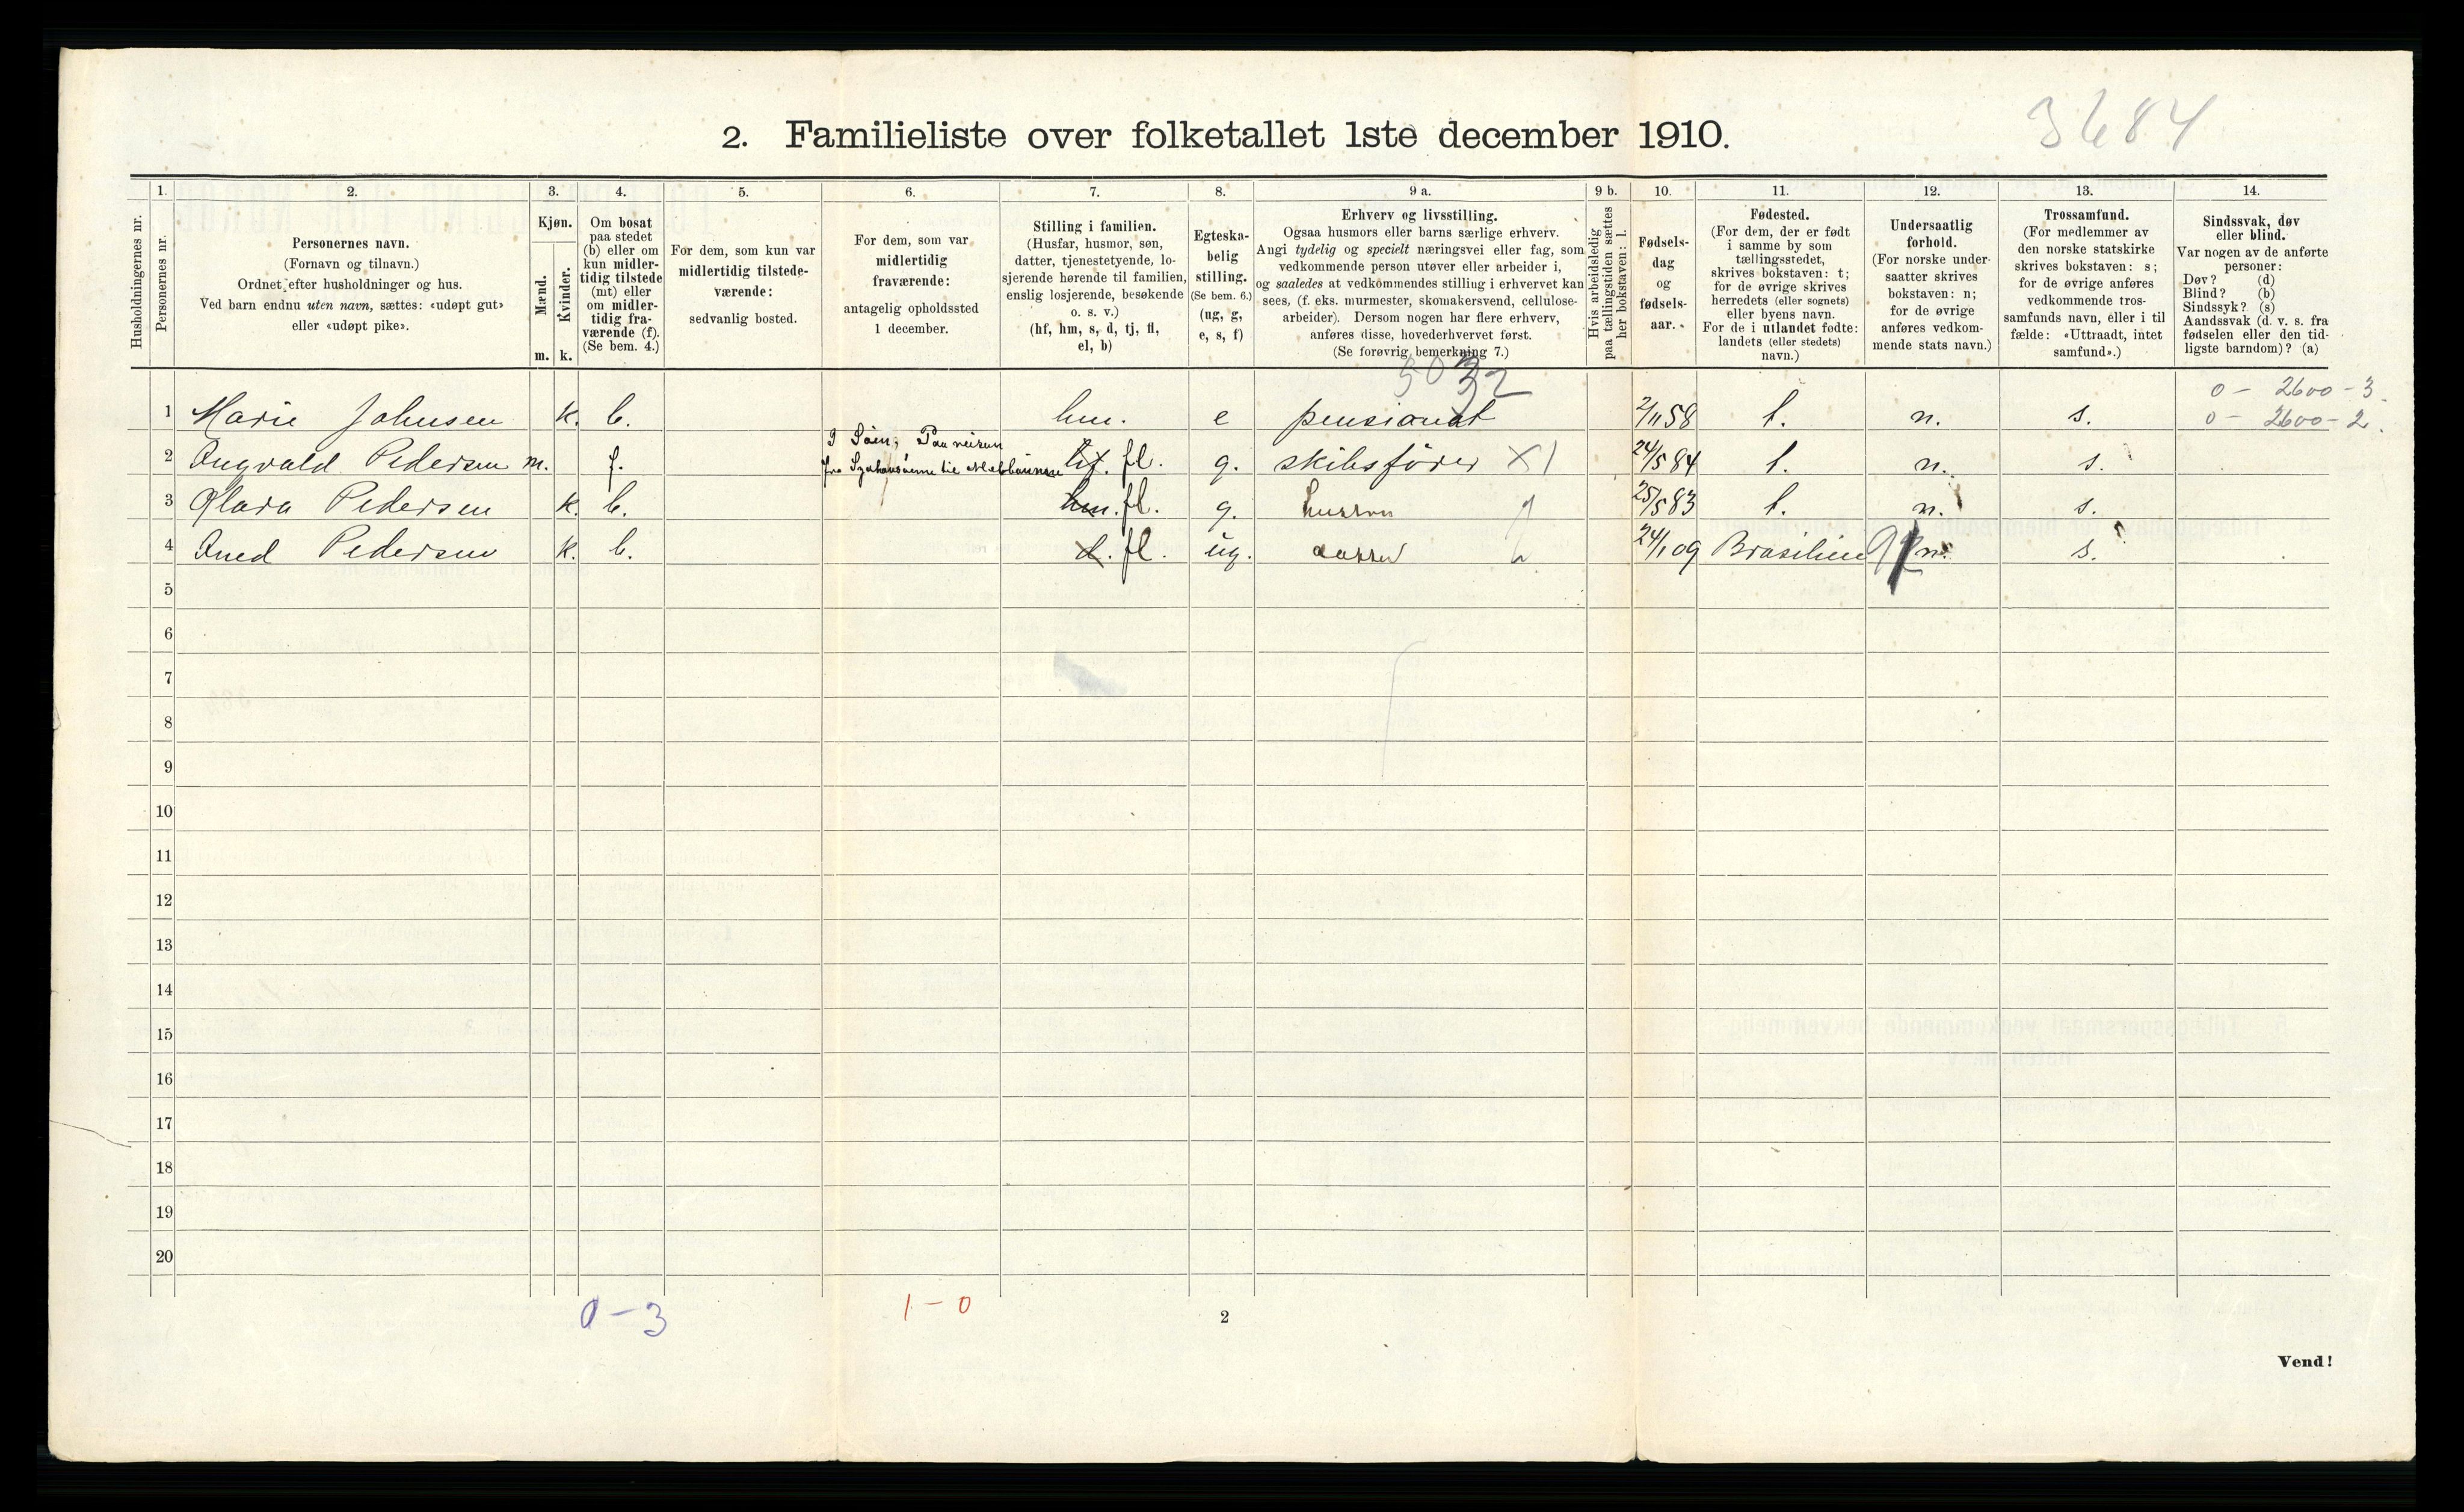 3684
2. Familieliste over folketallet 1ste december 1910.
1. 2. 3. 4. 5. 6. 7. 8. 9 a. 9 b. 10. 11. 12. 13. 14.
Husholdningernes nr.
Personernes nr.
Personernes navn.
(Fornavn og tilnavn.)
Ordnet efter husholdninger og hus.
Ved barn endnu uten navn, sættes: «udøpt gut»
eller «udøpt pike».
Kjøn.
Mænd.
Kvinder.
m. k.
Om bosat
paa stedet
(b) eller om
kun midler-
tidig tilstede
(mt) eller
om midler-
tidig fra-
værende (f).
(Se bem. 4.)
For dem, som kun var
midlertidig tilstede-
værende:
sedvanlig bosted.
For dem, som var
midlertidig
fraværende:
antagelig opholdssted
1 december.
Stilling i familien.
(Husfar, husmor, søn,
datter, tjenestetyende, lo-
sjerende hørende til familien,
enslig losjerende, besøkende
o. s. v.)
(hf, hm, s, d, tj, fl,
el, b)
Egteska-
belig
stilling.
(Se bem. 6.)
(ug, g,
e, s, f)
Erhverv og livsstilling.
Ogsaa husmors eller barns særlige erhverv.
Angi tydelig og specielt næringsvei eller fag, som
vedkommende person utøver eller arbeider i,
og saaledes at vedkommendes stilling i erhvervet kan
sees, (f. eks. murmester, skomakersvend, cellulose-
arbeider). Dersom nogen har flere erhverv,
anføres disse, hovederhvervet først.
(Se forøvrig bemerkning 7.)
Hvis arbeidsledig
paa tællingstiden sættes
her bokstaven: l.
Fødsels-
dag
og
fødsels-
aar.
Fødested.
(For dem, der er født
i samme by som
tællingsstedet,
skrives bokstaven: t;
for de øvrige skrives
herredets (eller sognets)
eller byens navn.
For de i utlandet fødte:
landets (eller stedets)
navn.)
Undersaatlig
forhold.
(For norske under-
saatter skrives
bokstaven: n;
for de øvrige
anføres vedkom-
mende stats navn.)
Trossamfund.
(For medlemmer av
den norske statskirke
skrives bokstaven: s;
for de øvrige anføres
vedkommende tros-
samfunds navn, eller i til
fælde: «Uttraadt, intet
samfund».)
Sindssvak, døv
eller blind.
Var nogen av de anførte
personer:
Døv? (d)
Blind? (b)
Sindssyk? (s)
Aandssvak (d. v. s. fra
fødselen eller den tid-
ligste barndom)? (a)
5032
0 - 2600 - 3
1 Marie Johnsen k. b. hm. e pensionat 2/11 58 t. n. s. 0 - 2600 - 2.
2 Ingvald Pedersen m. f. fl. g. skibsfører X1 24/5 84 t. n. s.
3 Klara Pedersen k. b. hm. fl. g. 25/5 83 t. n. s.
4 Pedersen k. b. d. fl. ug. 24/1 09 Brasilien n. s.
5
6
7
8
9
10
11
12
13
14
15
16
17
18
19
20
0 - 3 1 - 0
2
Vend!